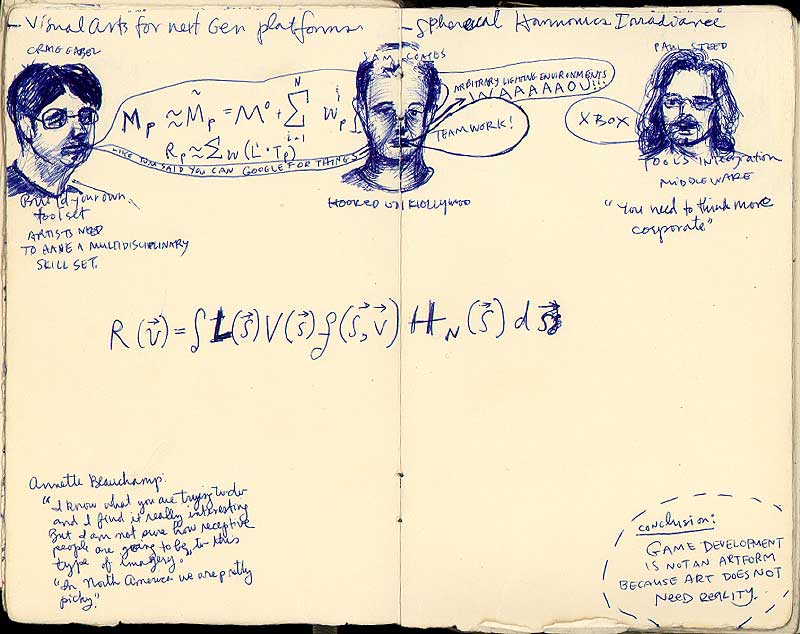 – Visual Arts for next Gen platforms
– Spherical Harmonics Irradiance
CRAIG
SAM COATES
PAUL STEED
M_p ≈ M̃_p = M⁰ + ∑_{i=1}^{N} w_p^i
R_p ≈ ∑ w (L^i · T_p)
LIKE TOM SAID YOU CAN GOOGLE FOR THINGS
ARBITRARY LIGHTING ENVIRONMENTS
WAAAAAOU!!!
TEAMWORK!
XBOX
Build your own
toolset
ARTISTS NEED
TO HAVE A MULTIDISCIPLINARY
SKILL SET.
HOOKED
TOOLS INTEGRATION
MIDDLEWARE
"You need to think more
corporate"
R(v⃗) = ∫ L(s⃗) V(s⃗) f(s⃗, v⃗) H_N(s⃗) d s⃗
Annette Beauchamp:
"I know what you are trying to do
and I find it really interesting
But I am not sure how receptive
people are going to be to this
type of imagery."
"In North America we are pretty
picky."
CONCLUSION:
GAME DEVELOPMENT
IS NOT AN ARTFORM
BECAUSE ART DOES NOT
NEED REALITY.